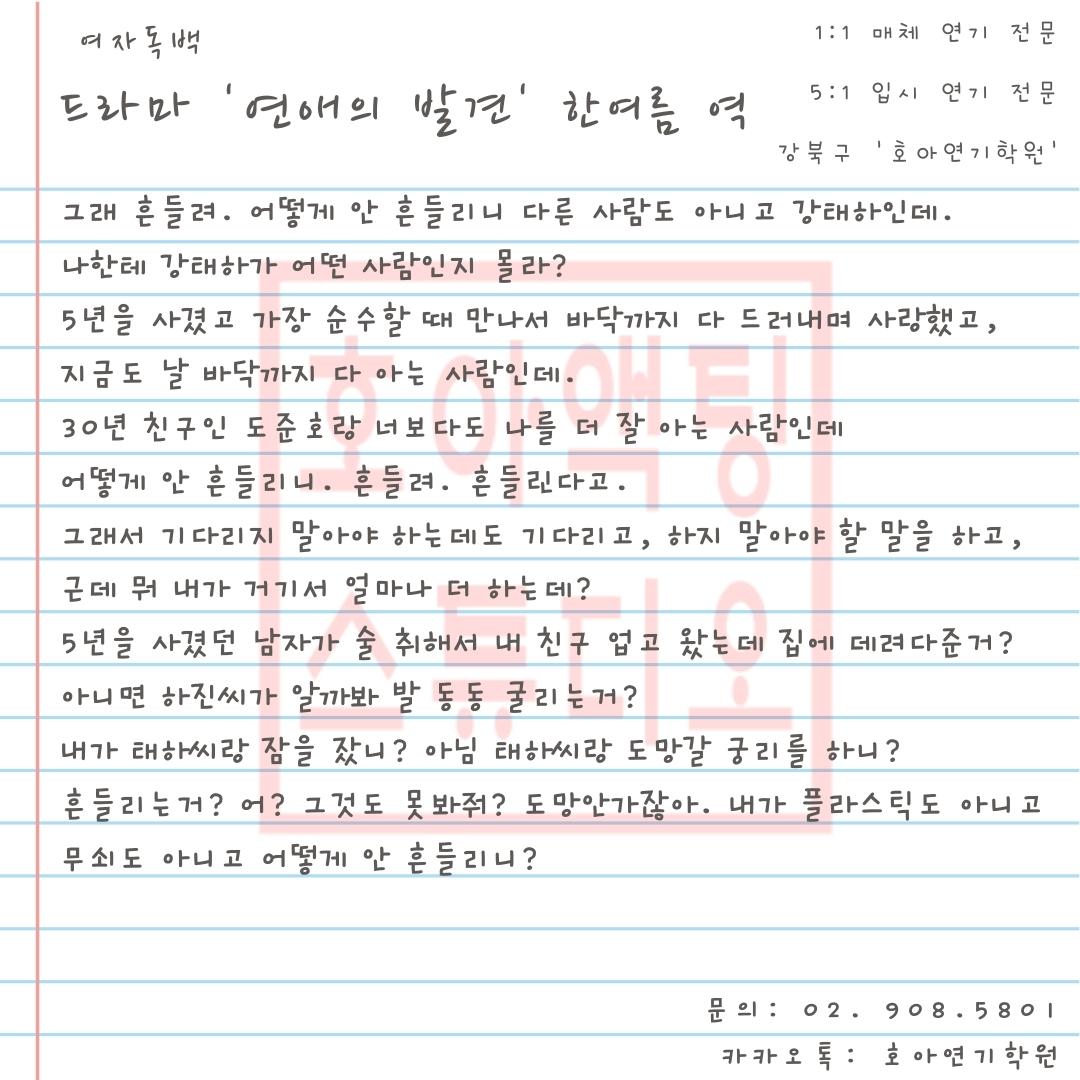 여자독백
드라마 '연애의 발견' 한여름 역
1:1 매체 연기 전문
5:1 입시 연기 전문
강북구 '호아연기학원'
그래 흔들려. 어떻게 안 흔들리니 다른 사람도 아니고 강태하인데.
나한테 강태하가 어떤 사람인지 몰라?
5년을 사겼고 가장 순수할 때 만나서 바닥까지 다 드러내며 사랑했고,
지금도 날 바닥까지 다 아는 사람인데.
30년 친구인 도준호랑 너보다도 나를 더 잘 아는 사람인데
어떻게 안 흔들리니. 흔들려. 흔들린다고.
그래서 기다리지 말아야 하는데도 기다리고, 하지 말아야 할 말을 하고,
근데 뭐 내가 거기서 얼마나 더 하는데?
5년을 사겼던 남자가 술 취해서 내 친구 업고 왔는데 집에 데려다준거?
아니면 하진씨가 알까봐 발 동동 굴리는거?
내가 태하씨랑 잠을 잤니? 아님 태하씨랑 도망갈 궁리를 하니?
흔들리는거? 어? 그것도 못봐줘? 도망안가잖아. 내가 플라스틱도 아니고
무쇠도 아니고 어떻게 안 흔들리니?
호아액팅
스튜디오
문의: 02. 908.5801
카카오톡: 호아연기학원